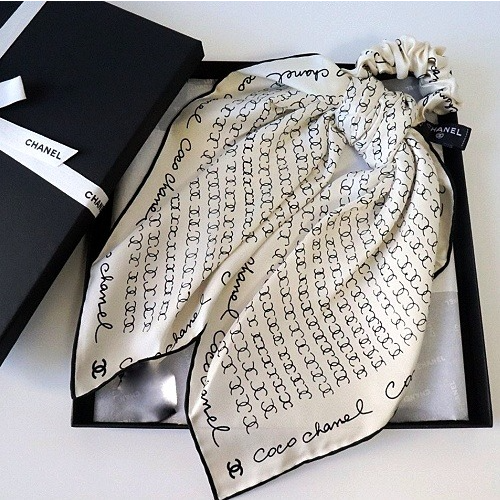 Chanel
CHANEL
CHANEL
CHANEL
Coco Chanel
Chanel
Coco Chanel
Coco Chanel
Co